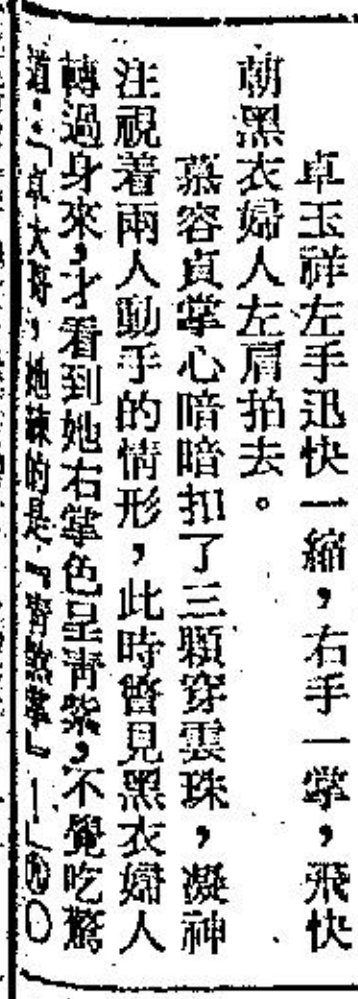 卓玉祥左手迅快一縮，右手一掌，飛快
朝黑衣婦人左肩拍去。
慕容貞掌心暗暗扣了三顆穿雲珠，凝神
注視着兩人動手的情形，此時瞥見黑衣婦人
轉過身來，才看到她右掌色呈青紫，不覺吃驚
道：「卓大哥，她練的是『青煞掌』！」